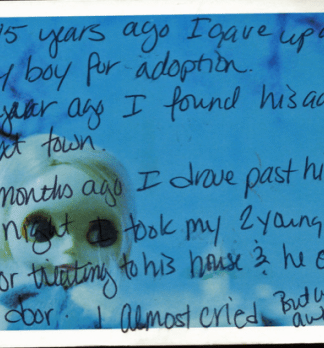 15 years ago I gave up
boy for adoption.
year ago I found his
town.
months ago I drove past
night I took my 2 young
or treating to his house & he
door. I almost cried. But